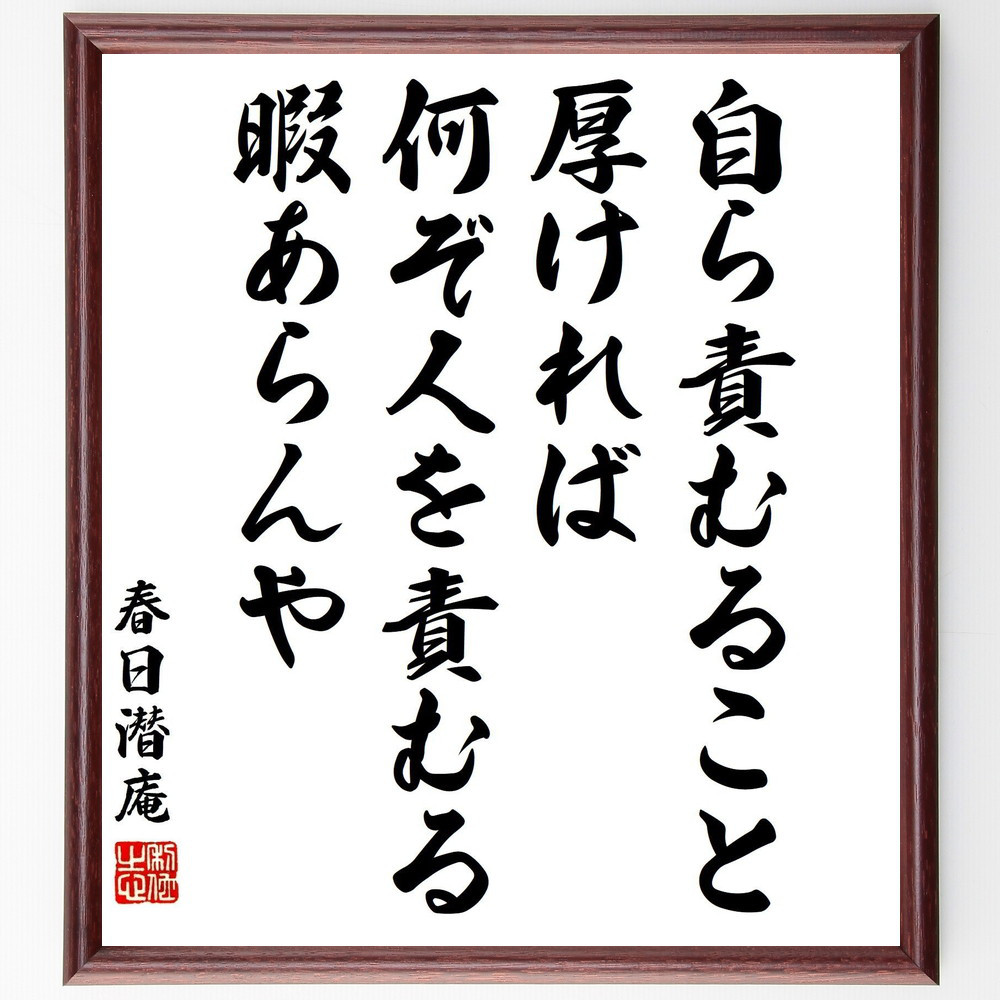 自ら責むること
厚ければ
何ぞ人を責むる
暇あらんや
春日潜庵